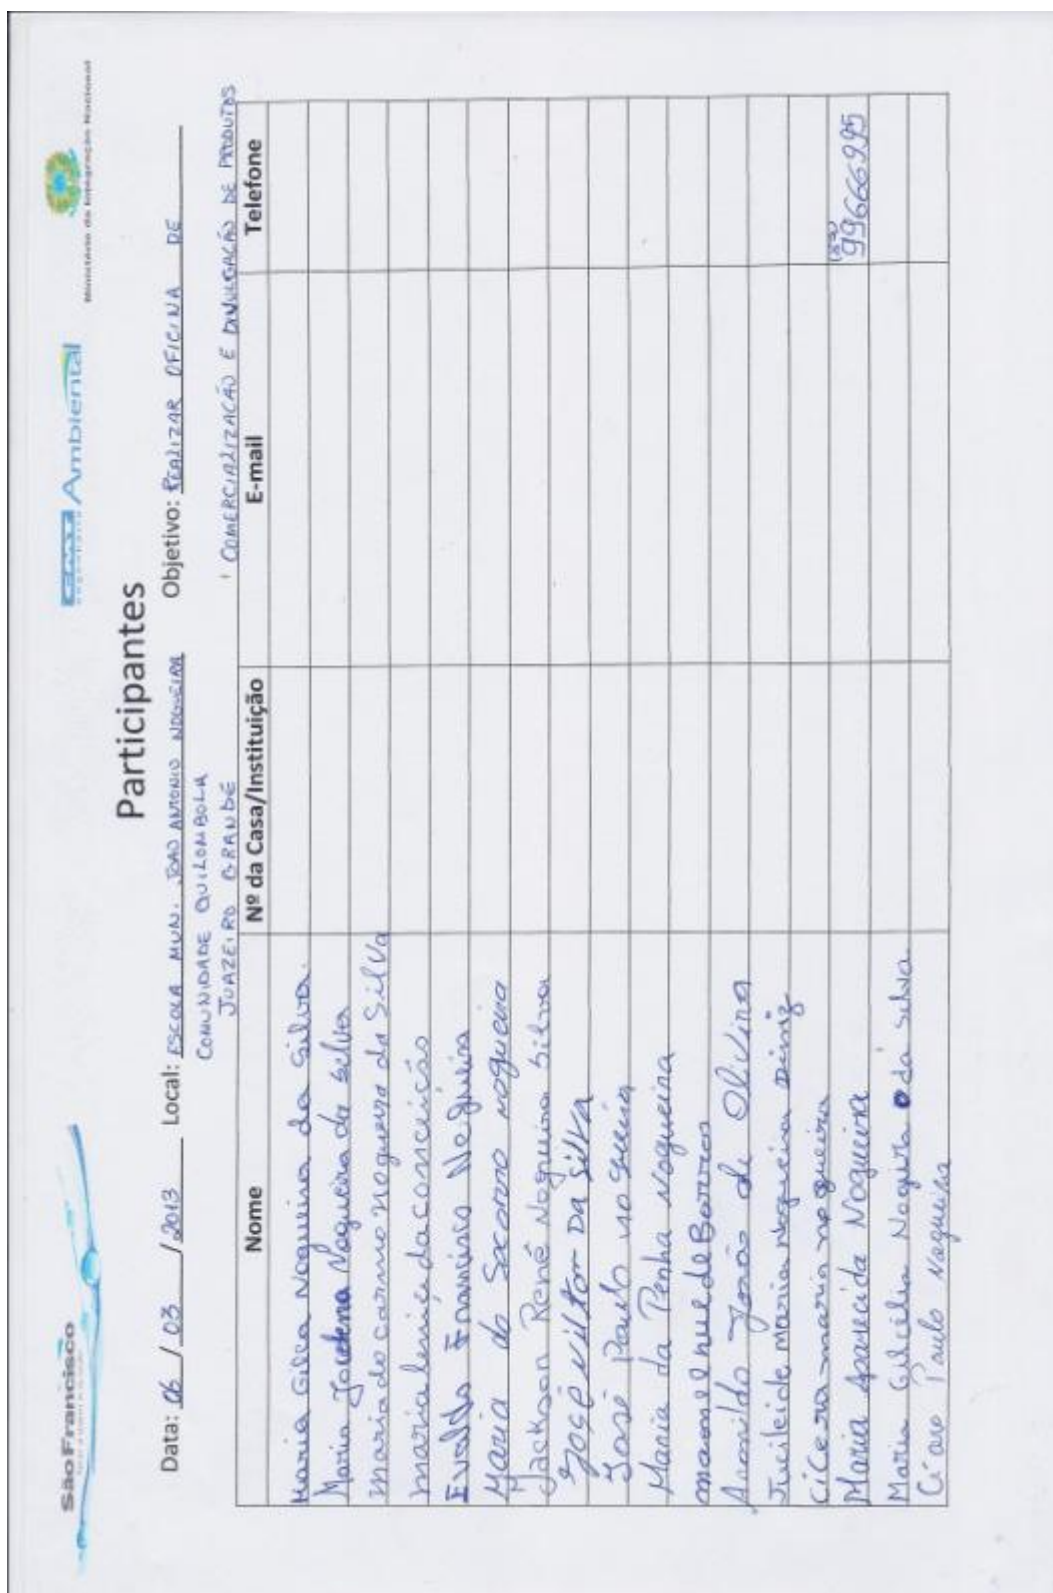 São Francisco
CMT Ambiental
engenharia
Ministério da Integração Nacional
Participantes
Data: 06 / 03 / 2013 Local: ESCOLA MUN. JOÃO ANTONIO NOGUEIRA Objetivo: REALIZAR OFICINA DE
COMUNIDADE QUILOMBOLA
JUAZEIRO GRANDE
COMERCIALIZAÇÃO E DIVULGAÇÃO DE PRODUTOS
Nome Nº da Casa/Instituição E-mail Telefone
Maria Gilca Nogueira da Silva.
Maria Nogueira da Silva
maria do carmo nogueira da Silva
maria lenice da conceição
Evaldo Francisco Nogueira
Maria do Socorro nogueira
Jackson Renê Nogueira Silva
José vilton DA SILVA
José Paulo nogueira
Maria da Penha Nogueira
manoel de Barros
João de Olivira
Jucileide maria Nogueira Diniz
Cicera maria nogueira
Maria Aparecida Nogueira 99666995
Maria Gilcélia Noguira da Silva
Paulo Nogueira